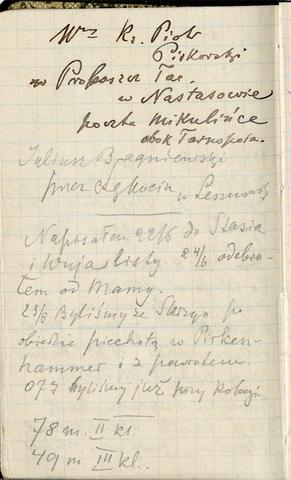 Wny Ks. Piotr
Piskorski
w Proboszcz Łac.
w Nastasowie
poczta Mikulińce
obok Tarnopola.
Juliusz
przez w
Napisałem 22/6 do Stasia
i Wuja listy. 24/6 odebra-
łem od Mamy.
23/6 Byliśmy ze po
obiedzie piechotą w Pirken-
hammer i z powrotem.
O 7 3 byliśmy już przy kolacji
78 m. II kl.
49 m III kl..